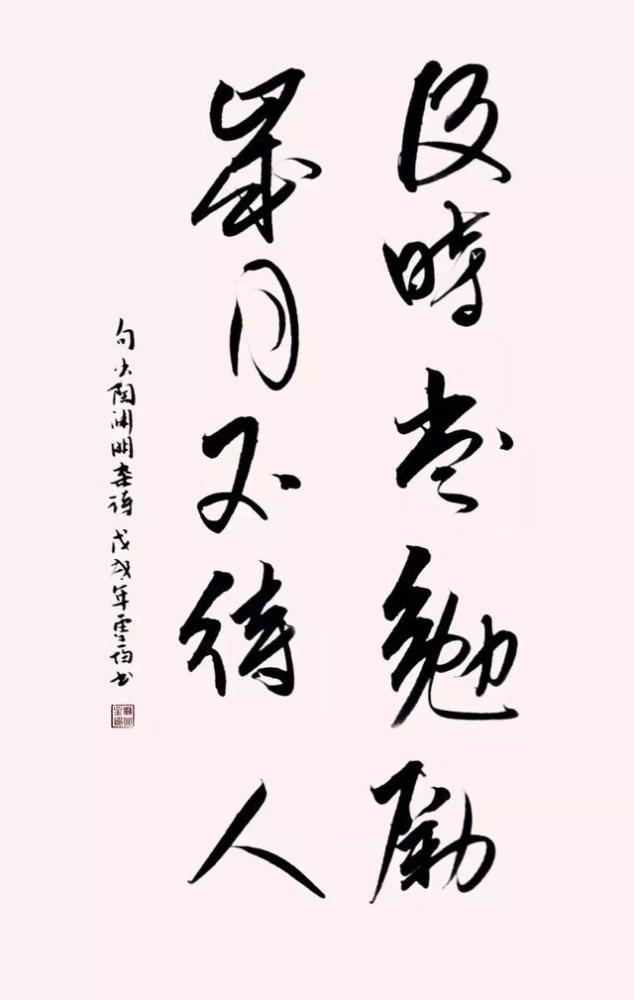 及時當勉勵
歲月不待人
句出陶渊明杂诗 戊戌年雲书